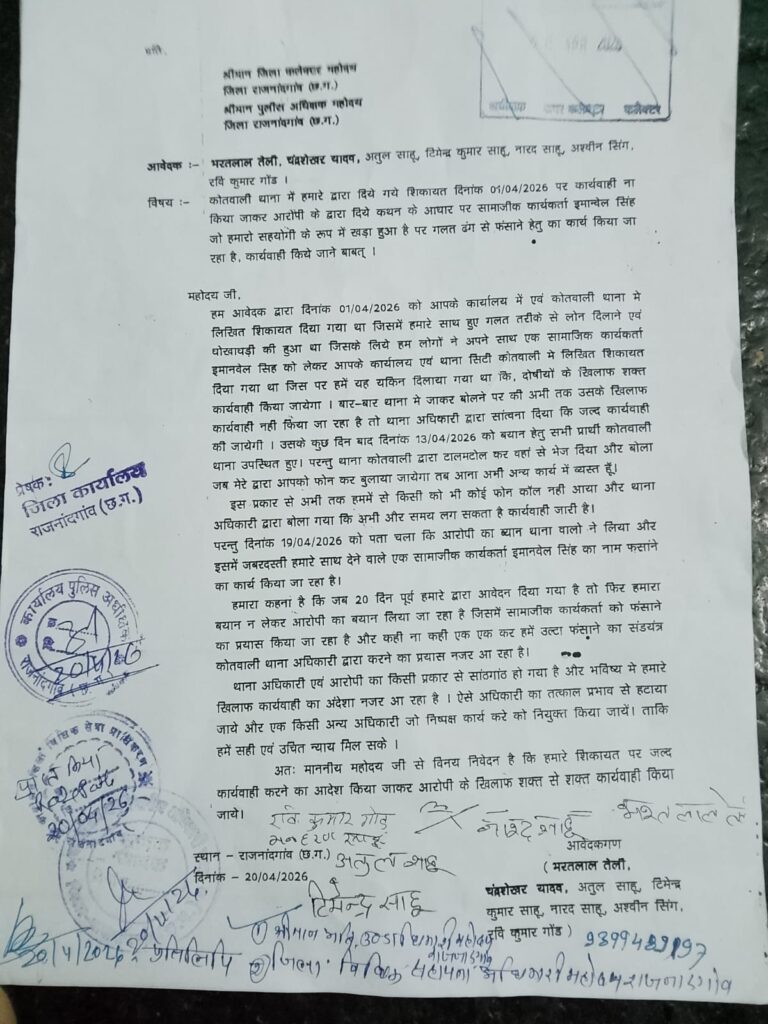 प्रति,
श्रीमान जिला कलेक्टर महोदय
जिला राजनांदगांव (छ.ग.)
श्रीमान पुलीस अधिक्षक महोदय
जिला राजनांदगांव (छ.ग.)
आवेदक :- भरतलाल तेली, चंद्रशेखर यादव, अतुल साहू, टिमेन्द्र कुमार साहू, नारद साहू, अश्वीन सिंग,
रवि कुमार गोंड ।
विषय :- कोतवाली थाना में हमारे द्वारा दिये गये शिकायत दिनांक 01/04/2026 पर कार्यवाही ना
किया जाकर आरोपी के द्वारा दिये कथन के आधार पर सामाजीक कार्यकर्ता इमान्वेल सिंह
जो हमारो सहयोगी के रूप में खड़ा हुआ है पर गलत ढंग से फंसाने हेतु का कार्य किया जा
रहा है, कार्यवाही किये जाने बाबत् ।
महोदय जी,
हम आवेदक द्वारा दिनांक 01/04/2026 को आपके कार्यालय में एवं कोतवाली थाना मे
लिखित शिकायत दिया गया था जिसमें हमारे साथ हुए गलत तरीके से लोन दिलाने एवं
धोखाधड़ी की हुआ था जिसके लिये हम लोगों ने अपने साथ एक सामाजिक कार्यकर्ता
इमानवेल सिह को लेकर आपके कार्यालय एवं थाना सिटी कोतवाली मे लिखित शिकायत
दिया गया था जिस पर हमें यह यकिन दिलाया गया था कि, दोषीयों के खिलाफ शक्त
कार्यवाही किया जायेगा । बार-बार थाना मे जाकर बोलने पर की अभी तक उसके खिलाफ
कार्यवाही नही किया जा रहा है तो थाना अधिकारी द्वारा सांत्वना दिया कि जल्द कार्यवाही
की जायेगी । उसके कुछ दिन बाद दिनांक 13/04/2026 को बयान हेतु सभी प्रार्थी कोतवाली
थाना उपस्थित हुए। परन्तु थाना कोतवाली द्वारा टालमटोल कर वहां से भेज दिया और बोला
जब मेरे द्वारा आपको फोन कर बुलाया जायेगा तब आना अभी अन्य कार्य में व्यस्त हूँ।
इस प्रकार से अभी तक हममें से किसी को भी कोई फोन कॉल नही आया और थाना
अधिकारी द्वारा बोला गया कि अभी और समय लग सकता है कार्यवाही जारी है।
परन्तु दिनांक 19/04/2026 को पता चला कि आरोपी का ब्यान थाना वालो ने लिया और
इसमें जबरदस्ती हमारे साथ देने वाले एक सामाजीक कार्यकर्ता इमानवेल सिंह का नाम फसांने
का कार्य किया जा रहा है।
हमारा कहना है कि जब 20 दिन पूर्व हमारे द्वारा आवेदन दिया गया है तो फिर हमारा
बयान न लेकर आरोपी का बयान लिया जा रहा है जिसमें सामाजीक कार्यकर्ता को फंसाने
का प्रयास किया जा रहा है और कही ना कही एक एक कर हमें उल्टा फंसाने का संडयंत्र
कोतवाली थाना अधिकारी द्वारा करने का प्रयास नजर आ रहा है।
थाना अधिकारी एवं आरोपी का किसी प्रकार से सांठगांठ हो गया है और भविष्य मे हमारे
खिलाफ कार्यवाही का अंदेशा नजर आ रहा है । ऐसे अधिकारी का तत्काल प्रभाव से हटाया
जाये और एक किसी अन्य अधिकारी जो निष्पक्ष कार्य करे को नियुक्त किया जायें। ताकि
हमें सही एवं उचित न्याय मिल सके ।
अतः माननीय महोदय जी से विनय निवेदन है कि हमारे शिकायत पर जल्द
कार्यवाही करने का आदेश किया जाकर आरोपी के खिलाफ शक्त से शक्त कार्यवाही किया
जाये।
रवि कुमार गोंड
नारद साहू
भरत लाल
स्थान - राजनांदगांव (छ.ग.)
अतुल साहू
आवेदकगण
दिनांक - 20/04/2026
( भरतलाल तेली,
टिमेन्द्र साहू
चंद्रशेखर यादव, अतुल साहू, टिमेन्द्र
कुमार साहू, नारद साहू, अश्वीन सिंग,
रवि कुमार गोंड )
प्रेषक:
जिला कार्यालय
राजनांदगांव (छ.ग.)
कार्यालय पुलिस अधीक्षक
राजनांदगांव
20/04/26
20/4/26
20/4/2026
प्रतिलिपि
① श्रीमान
② जिला विधिक सहायता अधिकारी महोदय राजनांदगांव